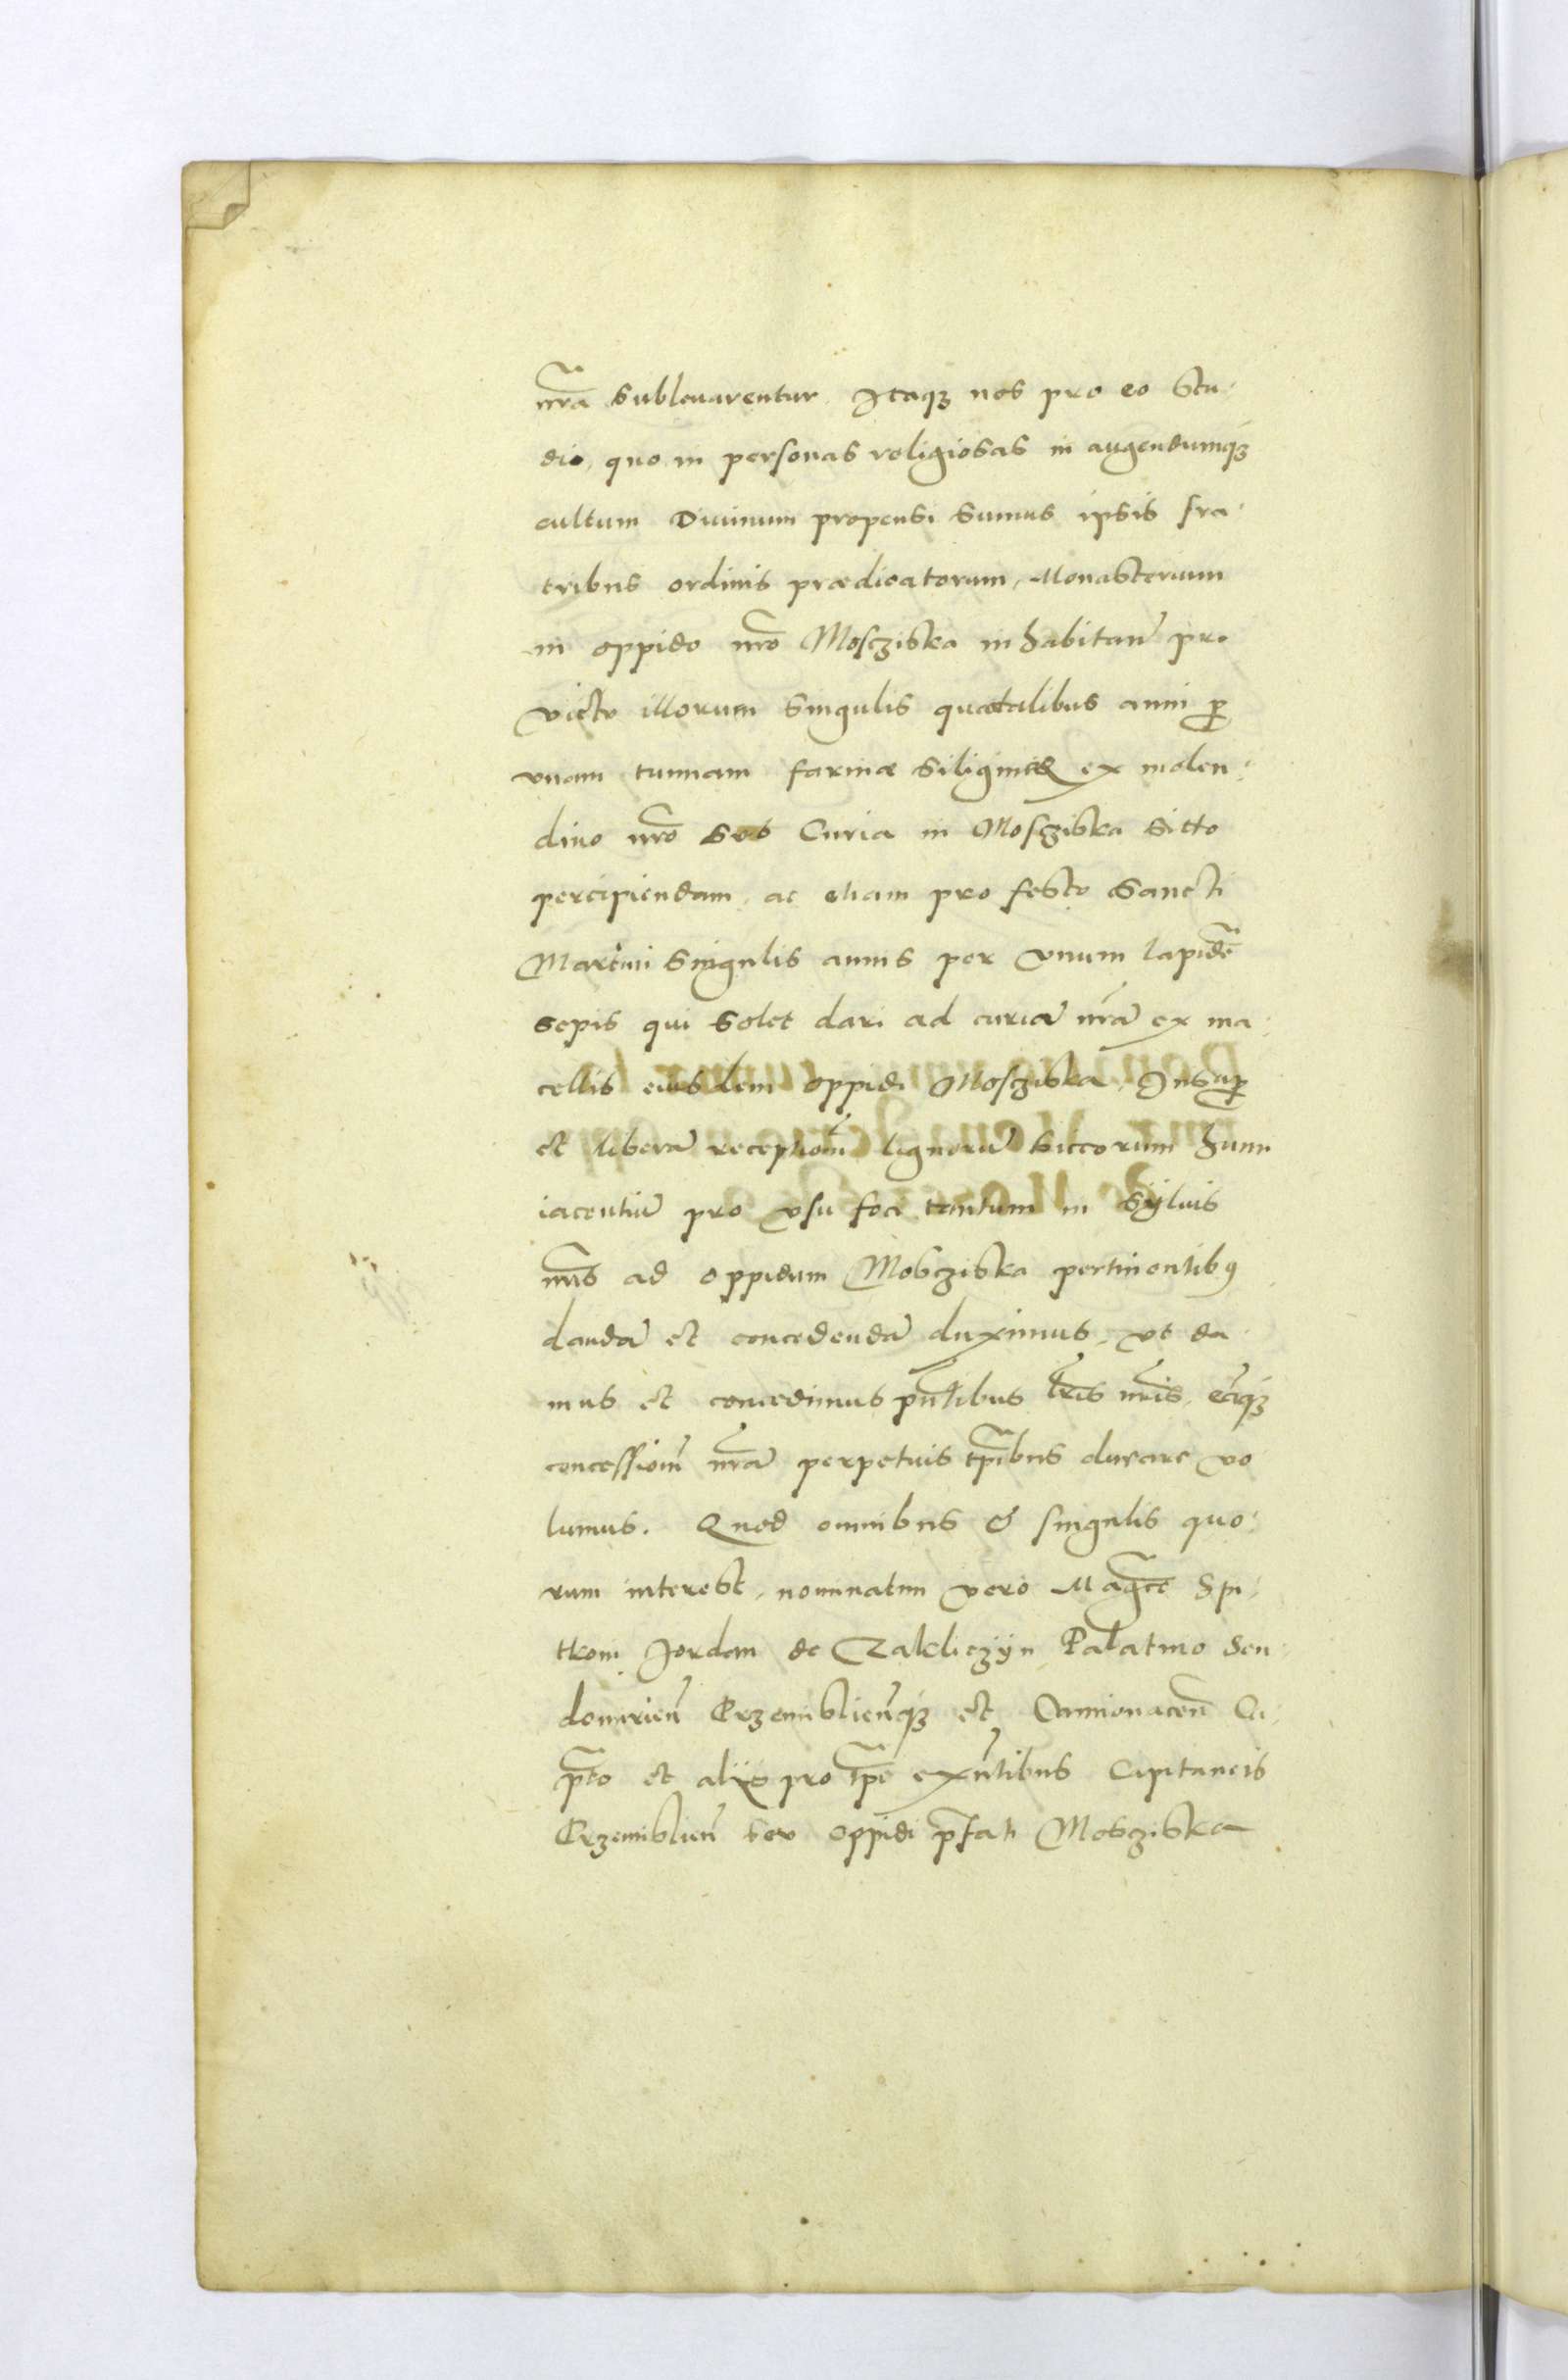 nrã sublevarentur. Itaqꝫ nos pro eo stu¬
dio, quo in personas religiosas in augendumqꝫ
cultum Divinum propensi sumus ipsis fra¬
tribus ordinis prædicatorum, Monasterium
in oppido nrõ Moscziska inhabitan̄ pro
victo illorum singulis quatalibus anni ꝑ
vnam tunnam farinæ siligineæ ex molen¬
dino nrõ sub Curia in Mosciska sitto
percipiendam, ac etiam pro festo Sancti
Martini singulis annis per vnum lapidẽ
sepis qui solet dari ad curiã nrã ex ma¬
cellis eiusdem oppidi Mosciska, Insuꝑ
et liberã receptionẽ lignorũ siccorum humi
iacentiũ pro vsu foci tantum in sÿluis
nrĩs ad oppidum Moscziska pertinentibꝯ
dandã et concedendã duximus, vt da
mus et concedimus pñtibus lrĩs nrĩs, eãqꝫ
concessionẽ nrã perpetuis tp̃ibus durare vo
lumus. Quod omnibus & singulis quo¬
rum interest, nominatim vero Magcõ Spi¬
tkoni Jordan de Zakliczÿn Palatino Sen
domirieñ Przemislieñqꝫ et Camionaceñ Ca¬
p̃to et alÿs pro tp̃e exñtibus Capitaneis
Przemislieñ seu oppidi p̃fati Moscziska